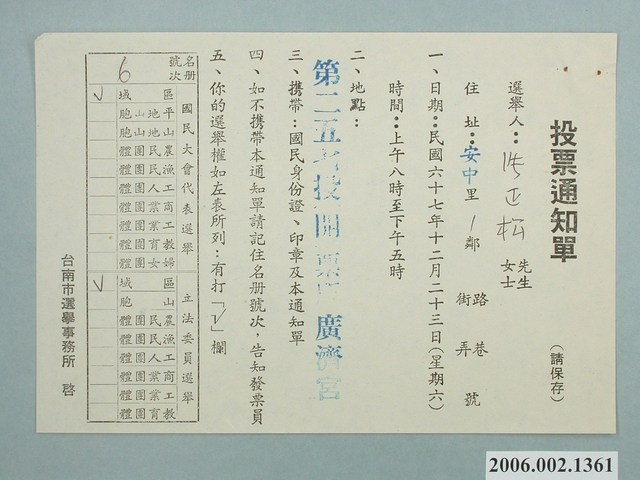 投票通知單
(請保存)
選舉人：洪正松 先生 女士
住址：安中里 1 鄰 路街 巷弄 號
一、日期：民國六十七年十二月二十三日(星期六)
時間：上午八時至下午五時
二、地點：
第二五 投開票 廣濟宮
三、携帶：國民身份證、印章及本通知單
四、如不携帶本通知單請記住名册號次，告知發票員
五、你的選舉權如左表所列：有打「√」欄
名册號次
6
國民大會代表選舉
區域 √
平地山胞
山地山胞
農民團體
漁民團體
工人團體
商業團體
工業團體
教育團體
婦女團體
立法委員選舉
區域 √
山胞
農民團體
漁民團體
工人團體
商業團體
工業團體
教育團體
台南市選舉事務所 啓
2006.002.1361